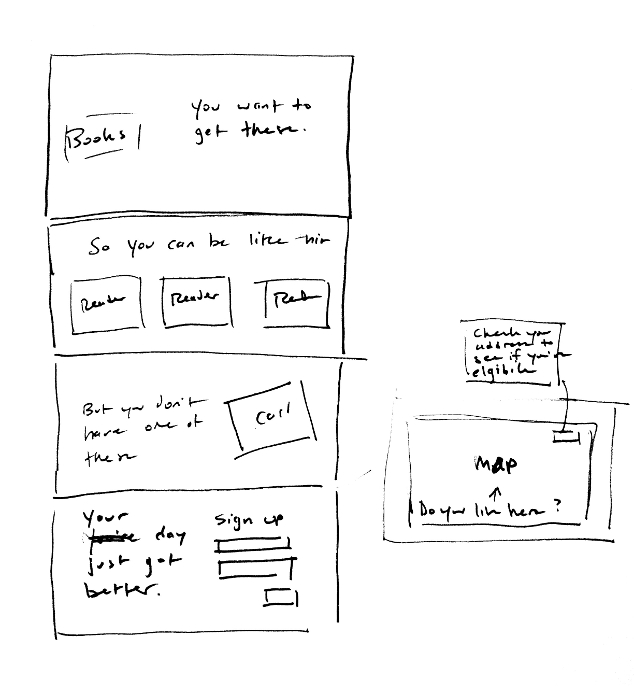 Books
You want to
get these.
So you can be like
Reader
Reader
But you don't
have one of
these
Card
Your
day
just got
better.
Sign up
Check your
address to
see if you're
elgibile
Map
Do you live here?